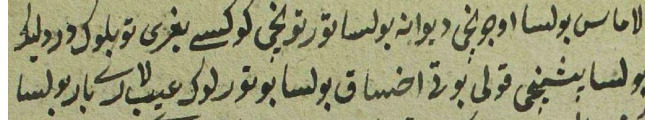 لاماس بولسا اوچونچى ديوانه بولسا تورتونچى كوكسى بغرى توبلوك دردليك
بولسا بيشنجى قولى بوتى اخساق بولسا بو تورلوك عيب لارى بار بولسا